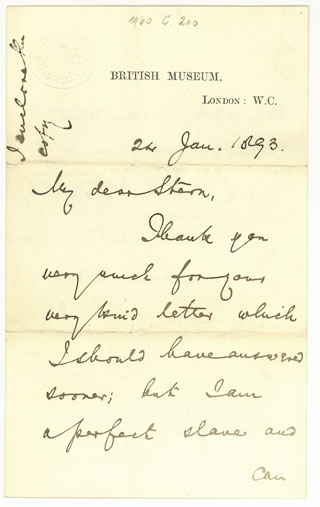 1960 C. 210
I enclose the
copy
BRITISH MUSEUM,
LONDON: W.C.
24 Jan. 1893.
My dear Stern,
Thank you
very much for your
very kind letter which
I should have answered
sooner; but I am
a perfect slave and
can